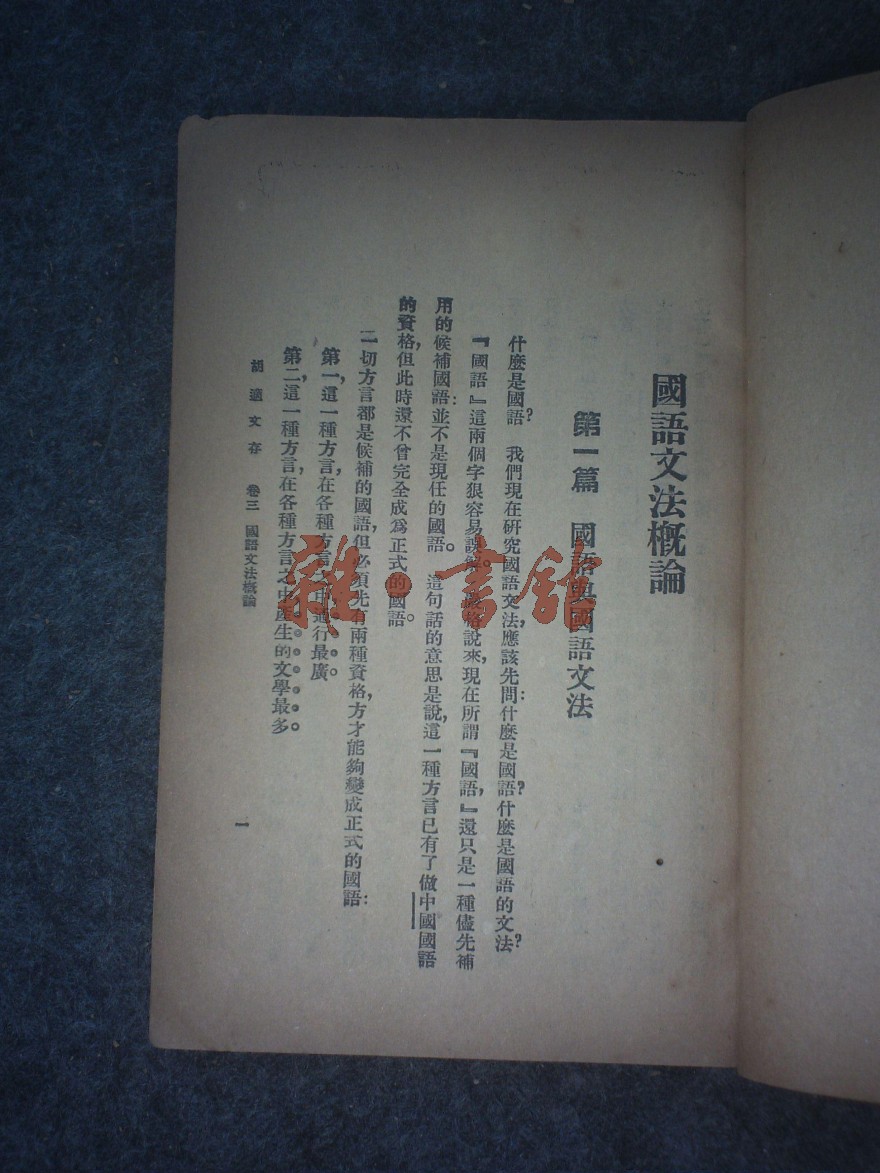 國語文法概論
第一篇　國語與國語文法
什麼是國語?　我們現在研究國語文法,應該先問:什麼是國語?什麼是國語的文法?
『國語』這兩個字狠容易誤解。嚴格說來,現在所謂『國語,』還只是一種儘先補
用的候補國語:並不是現任的國語。　這句話的意思是說,這一種方言已有了做中國國語
的資格,但此時還不曾完全成爲正式的國語。
一切方言都是候補的國語,但必須先有兩種資格,方才能夠變成正式的國語:
第一,這一種方言,在各種方言之中,通行最廣。
第二,這一種方言,在各種方言之中,產生的文學最多。
胡適文存　卷三　國語文法概論
一
雜·書館